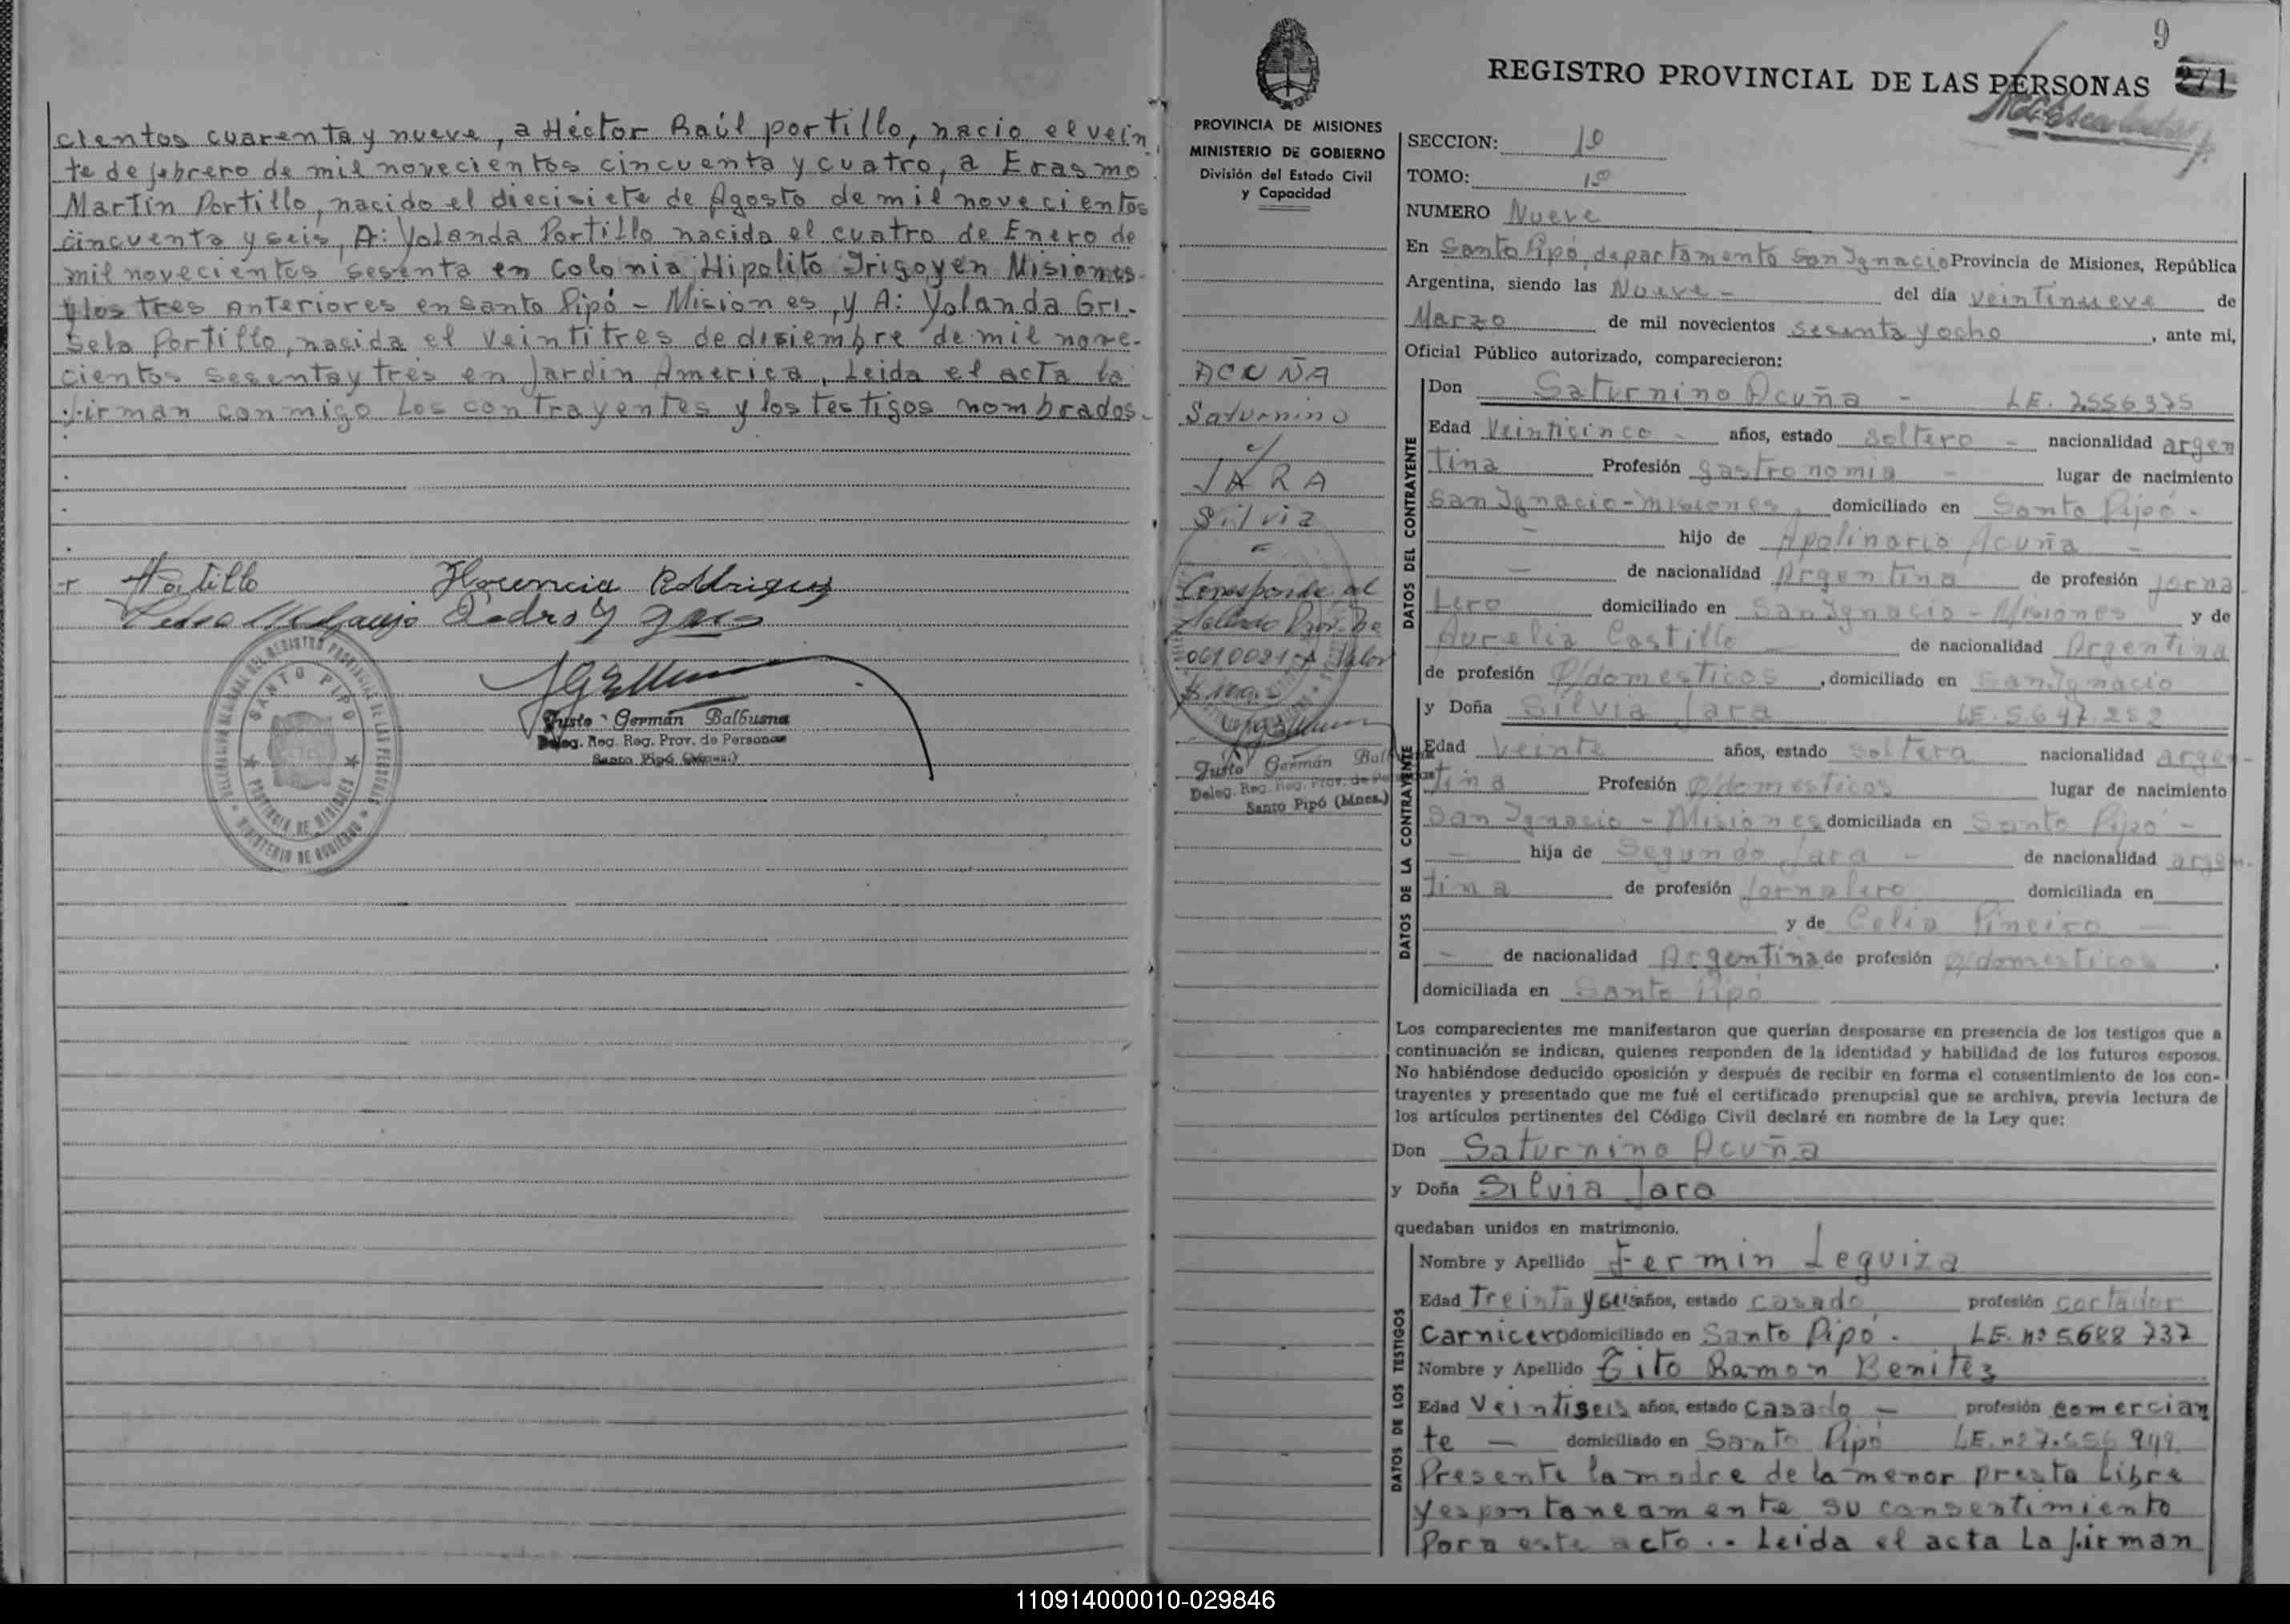 cientos cuarenta y nueve, a Héctor Raúl portillo, nacio el vein
te de febrero de mil novecientos cincuenta y cuatro, a Erasmo
Martín Portillo, nacido el diecisiete de Agosto de mil novecientos
cincuenta y seis, A: Yolanda Portillo nacida el cuatro de Enero de
mil novecientos sesenta en Colonia Hipolito Irigoyen Misiones.
y los tres anteriores en Santo Pipó - Misiones, y A: Yolanda Gri-
sela Portillo, nacida el veintitres de disiembre de mil nove-
cientos sesenta y tres en Jardin America, Leida el acta la
firman conmigo los contrayentes y los testigos nombrados.-
Portillo Florencia Rodriguez
Justo German Balbuena
Deleg. Reg. Reg. Prov. de Personas
Santo Pipó (Mnes.)
SANTO PIPO
PROVINCIA DE MISIONES
MINISTERIO DE GOBIERNO
9
REGISTRO PROVINCIAL DE LAS PERSONAS 271
PROVINCIA DE MISIONES
MINISTERIO DE GOBIERNO
División del Estado Civil
y Capacidad
ACUÑA
Saturnino
c/
JARA
Silvia
Corresponde al
Sellado Prov. No
0610021 A Valor
Justo German Bal
Deleg. Reg. Reg. Prov. de Personas
Santo Pipó (Mnes.)
SECCION: 1º
TOMO: 1º
NUMERO Nueve
En Santo Pipó, departamento San Ignacio Provincia de Misiones, República
Argentina, siendo las Nueve - del día veintinueve de
Marzo de mil novecientos sesenta y ocho, ante mi,
Oficial Público autorizado, comparecieron:
DATOS DEL CONTRAYENTE
Don Saturnino Acuña - LE. 7556375
Edad Veinticinco - años, estado soltero - nacionalidad argen
tina Profesión gastronomia - lugar de nacimiento
San Ignacio - Misiones, domiciliado en Santo Pipó -
- hijo de Apolinario Acuña -
- de nacionalidad Argentina de profesión jorna
lero domiciliado en San Ignacio - Misiones y de
Aurelia Castillo - de nacionalidad Argentina
de profesión q/domesticos, domiciliado en San Ignacio
DATOS DE LA CONTRAYENTE
y Doña Silvia Jara LE. 5.647.252
Edad Veinte años, estado soltera nacionalidad argen-
tina Profesión q/domesticos lugar de nacimiento
San Ignacio - Misiones domiciliada en Santo Pipó -
- hija de Segundo Jara - de nacionalidad argen-
tina de profesión Jornalero domiciliada en
y de Celia Pineiro -
- de nacionalidad Argentina de profesión q/domesticos,
domiciliada en Santo Pipó
Los comparecientes me manifestaron que querían desposarse en presencia de los testigos que a
continuación se indican, quienes responden de la identidad y habilidad de los futuros esposos.
No habiéndose deducido oposición y después de recibir en forma el consentimiento de los con-
trayentes y presentado que me fué el certificado prenupcial que se archiva, previa lectura de
los artículos pertinentes del Código Civil declaré en nombre de la Ley que:
Don Saturnino Acuña
y Doña Silvia Jara
quedaban unidos en matrimonio.
DATOS DE LOS TESTIGOS
Nombre y Apellido Fermin Leguiza
Edad Treinta y seis años, estado casado profesión cortador
Carnicero domiciliado en Santo Pipó. LE. nº 5688737
Nombre y Apellido Tito Ramon Benitez
Edad Veintiseis años, estado casado - profesión comercian
te - domiciliado en Santo Pipó LE. nº 7.556 949
Presente la madre de la menor presta libre
y espontaneamente su consentimiento
para este acto.- Leida el acta la firman
110914000010-029846